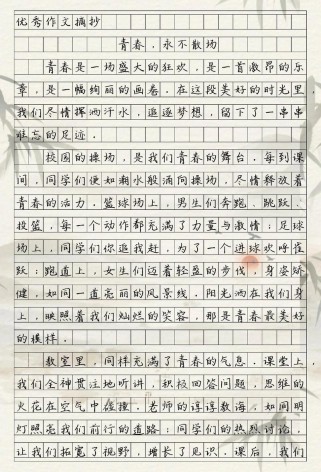 优秀作文摘抄
青春，永不散场
青春是一场盛大的狂欢，是一首激昂的乐
章，是一幅绚丽的画卷。在这段美好的时光里，
我们尽情挥洒汗水，追逐梦想，留下了一串串
难忘的足迹。
校园的操场，是我们青春的舞台。每到课
间，同学们便如潮水般涌向操场，尽情释放着
青春的活力。篮球场上，男生们奔跑、跳跃、
投篮，每一个动作都充满了力量与激情；足球
场上，同学们你追我赶，为了一个进球欢呼雀
跃；跑道上，女生们迈着轻盈的步伐，身姿矫
健，如同一道亮丽的风景线。阳光洒在我们身
上，映照着我们灿烂的笑容，那是青春最美好
的模样。
教室里，同样充满了青春的气息。课堂上，
我们全神贯注地听讲，积极回答问题，思维的
火花在空气中碰撞。老师的谆谆教诲，如同明
灯照亮我们前行的道路；同学们的热烈讨论，
让我们拓宽了视野，增长了见识。课后，我们